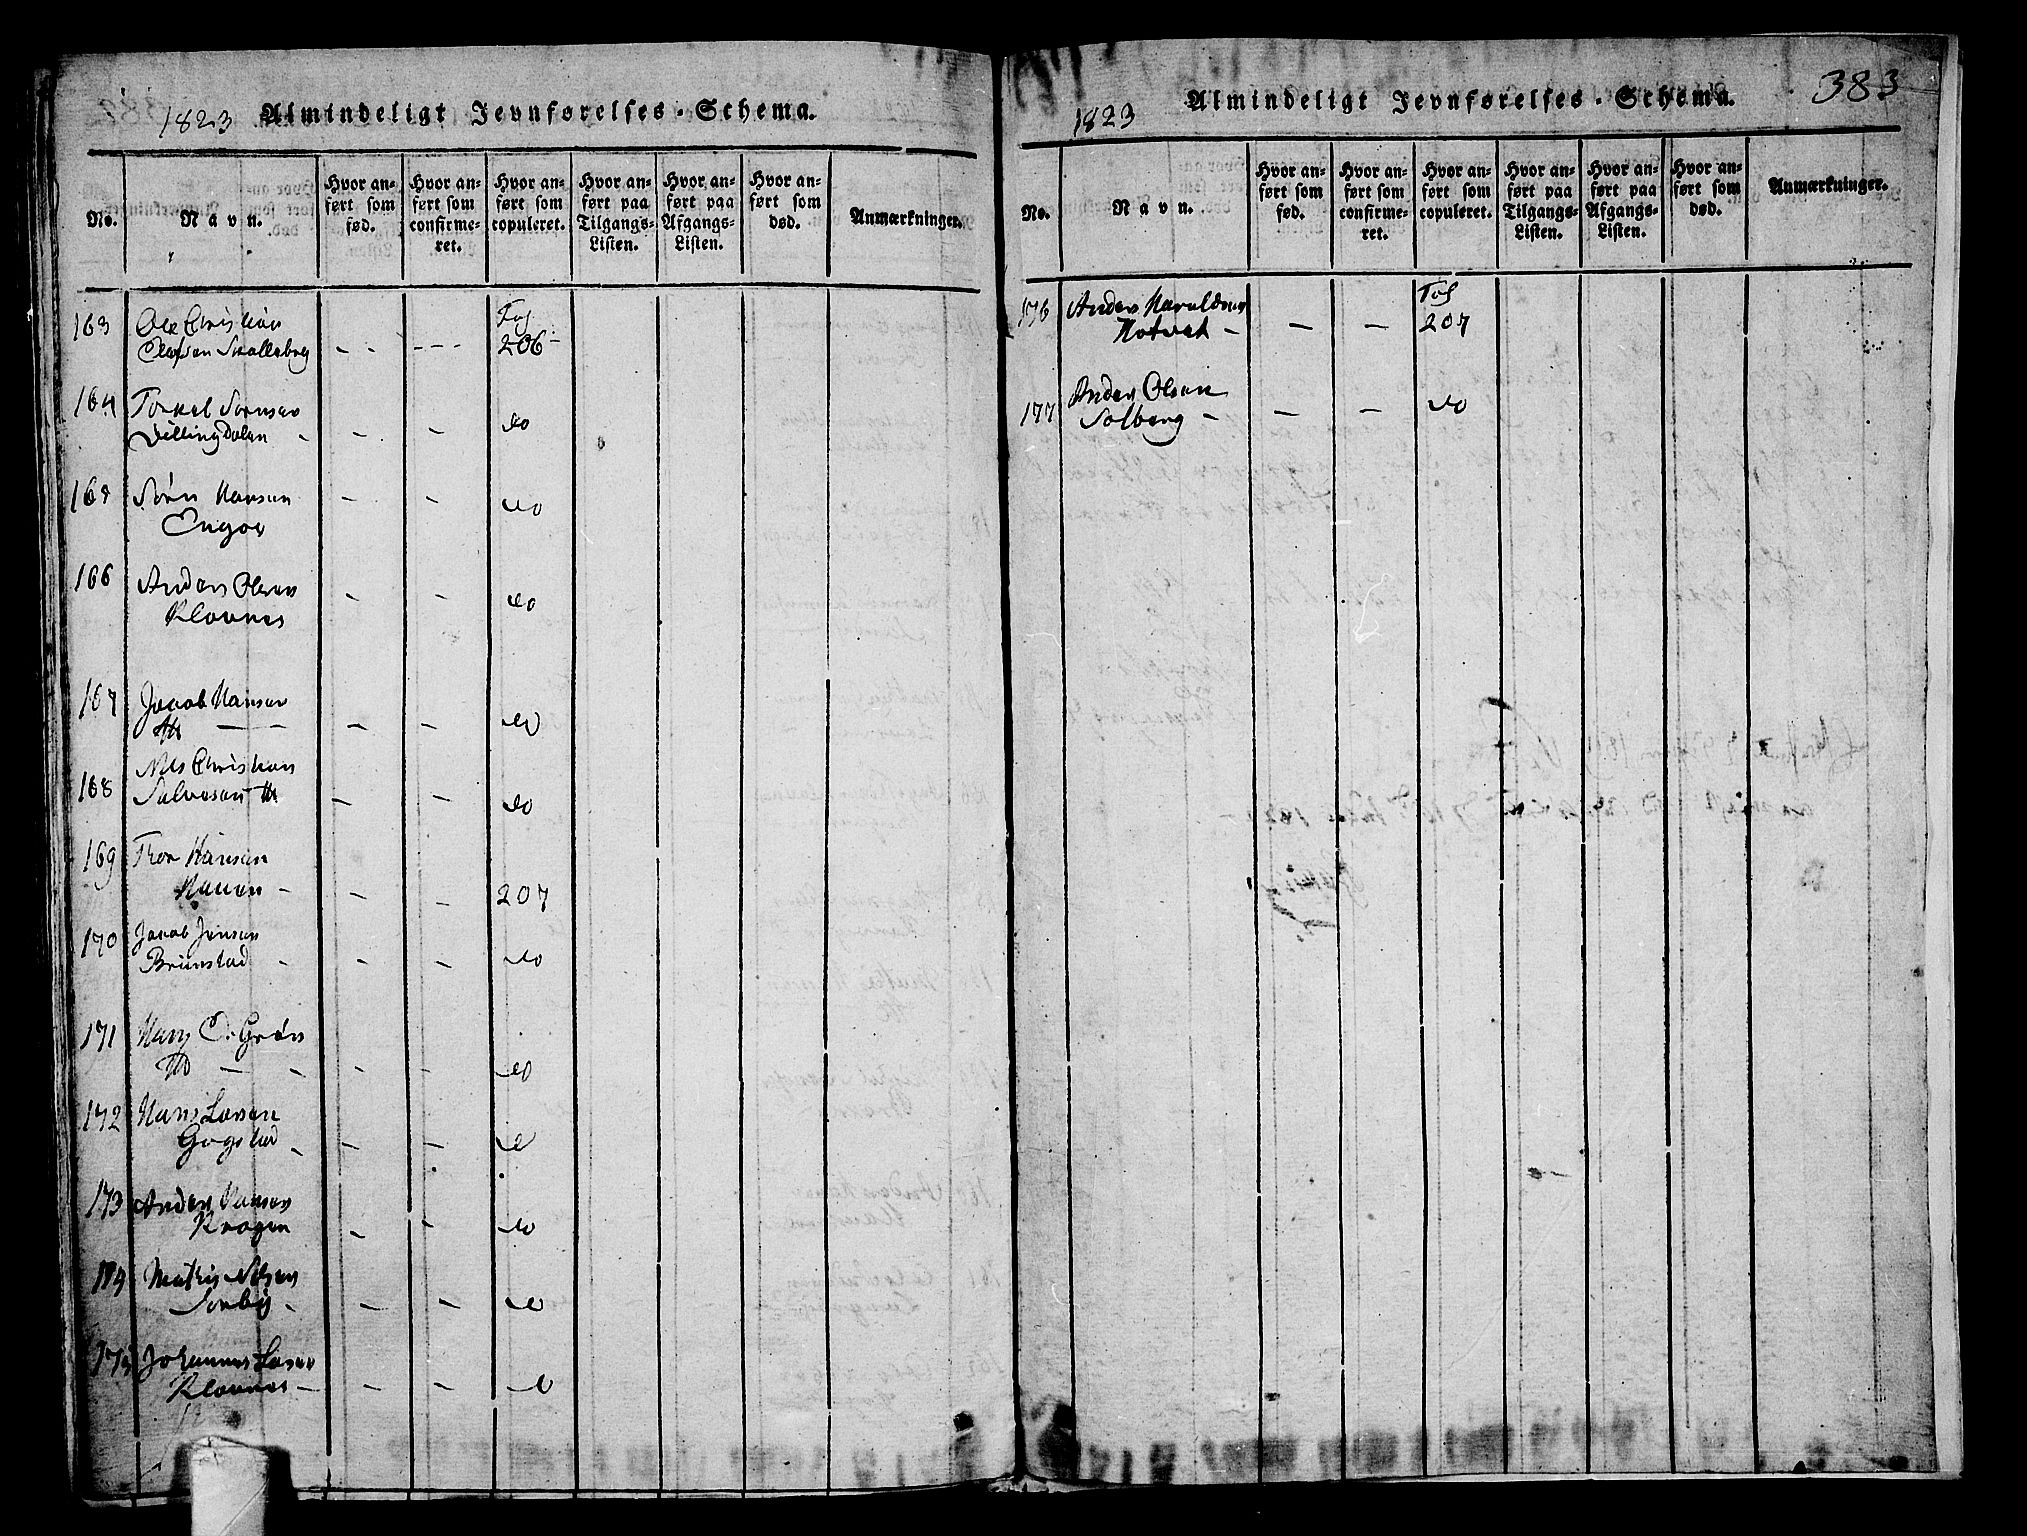 1823 Almindeligt Jevnførelses-Schema.
No.
Navn.
Hvor an-
ført som
fød.
Hvor an-
ført som
confirme-
ret.
Hvor an-
ført som
copuleret.
Hvor an-
ført paa
Tilgangs-
Listen.
Hvor an-
ført paa
Afgangs-
Listen.
Hvor an-
ført som
død.
Anmærkninger.
163 Ole Christian Fol
Olefsen Skalleberg - - - - - 206 -
164 Torkel Sørensen
- - - do
165 Sørn Hansen - - do
Engøe
166 Anders Olsen - - do
Klavnes
167 Jacob Hansen
- - - do
168 Nils Christian
Salvesen - - do
169 Thor Hansen
Hauan - - - 207
170 Jacob Jensen
Brunstad - - - do
171 Hans O. Grøn
- - - - do
172 Hans Larsen
Gogstad - - - do
173 Anders Hansen
Kragen - - do
174 Mathis Nilsen
Sørby - - - do
175 Johannes Larsen
Klavnes - - - do
383
1823 Almindeligt Jevnførelses-Schema.
No.
Navn.
Hvor an-
ført som
fød.
Hvor an-
ført som
confirme-
ret.
Hvor an-
ført som
copuleret.
Hvor an-
ført paa
Tilgangs-
Listen.
Hvor an-
ført paa
Afgangs-
Listen.
Hvor an-
ført som
død.
Anmærkninger.
176 Anders Haraldsen Fol
Hotvet - - - 207
177 Anders Olsen
Solberg - - - do